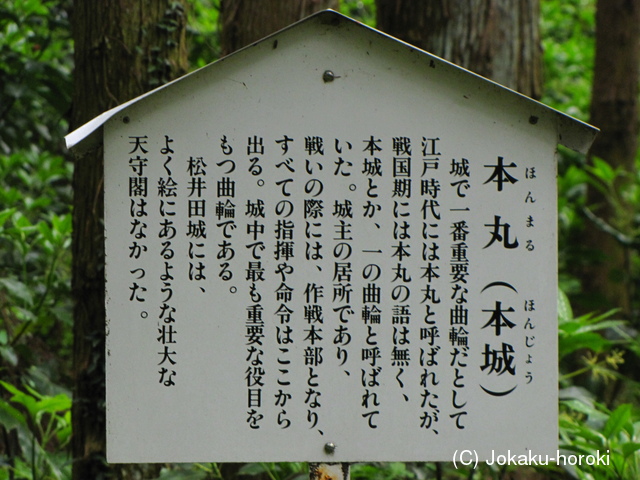 本丸（本城）
ほんまる
ほんじょう
城で一番重要な曲輪だとして
江戸時代には本丸と呼ばれたが、
戦国期には本丸の語は無く、
本城とか、一の曲輪と呼ばれて
いた。城主の居所であり、
戦いの際には、作戦本部となり、
すべての指揮や命令はここから
出る。城中で最も重要な役目を
もつ曲輪である。
松井田城には、
よく絵にあるような壮大な
天守閣はなかった。
(C) Jokaku-horoki